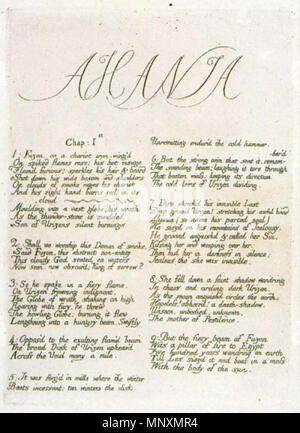 AHANIA
Chap: I st
1: Fuzon, on a chariot iron-wing'd
On spiked flames rose; his hot visage
Flam'd furious! sparkles his hair & beard
Shot down his wide bosom and shoulders.
On clouds of smoke rages his chariot
And his right hand burns red in its
cloud
Moulding into a vast globe, his wrath
As the thunder-stone is moulded.
Son of Urizens silent burnings
2: Shall we worship this Demon of smoke,
Said Fuzon, this abstract non-entity
This cloudy God seated on waters
Now seen, now obscur'd; King of sorrow?
3: So he spoke, in a fiery flame,
On Urizen frowning indignant,
The Globe of wrath shaking on high
Roaring with fury, he threw
The howling Globe: burning it flew
Lengthning into a hungry beam. Swiftly
4: Oppos'd to the exulting flam'd beam
The broad Disk of Urizen upheav'd
Across the Void many a mile.
5: It was forg'd in mills where the winter
Beats incessant; ten winters the disk
Unremitting endur'd the cold hammer.
6: But the strong arm that sent it, remem-
-ber'd
The sounding beam; laughing it tore through
That beaten mass: keeping its direction
The cold loins of Urizen dividing.
7: Dire shriek'd his invisible Lust
Deep groan'd Urizen! stretching his awful hand
Ahania (so name his parted soul)
He siez'd on his mountains of Jealousy.
He groand anguishd & called her Sin,
Kissing her and weeping over her;
Then hid her in darkness in silence;
Jealous tho' she was invisible.
8: She fell down a faint shadow wandring
In chaos and circling dark Urizen,
As the moon anguishd circles the earth;
Hopeless! abhorrd! a death-shadow,
Unseen, unbodied, unknown,
The mother of Pestilence.
9: But the fiery beam of Fuzon
Was a pillar of fire to Egypt
Five hundred years wandring on earth
Till Los siezd it and beat in a mass
With the body of the sun.
alamy
Image ID: MNXMR4
www.alamy.com